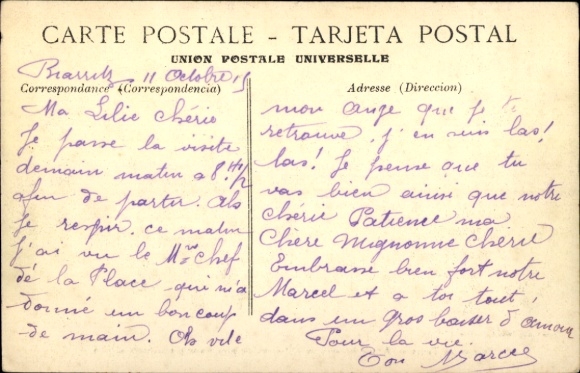 CARTE POSTALE - TARJETA POSTAL
UNION POSTALE UNIVERSELLE
Biarritz 11 Octobre 15
Correspondance (Correspondencia)
Adresse (Direccion)
Ma Lilie chérie
Je passe la visite
demain matin a 8 H 1/2
afin de partir. Ah
Je respir. ce matin
j'ai vu le Mcin Chef
de la Place qui m'a
donné un bon coup
de main. Oh vite
mon ange que je te
retrouve, j'en suis las!
las! Je pense que tu
vas bien ainsi que notre
chérie Patience ma
Chère Mignonne Chérie
Embrasse bien fort notre
Marcel et a toi tout
dans un gros baiser d'amour
Pour la vie.
Ton Marcel